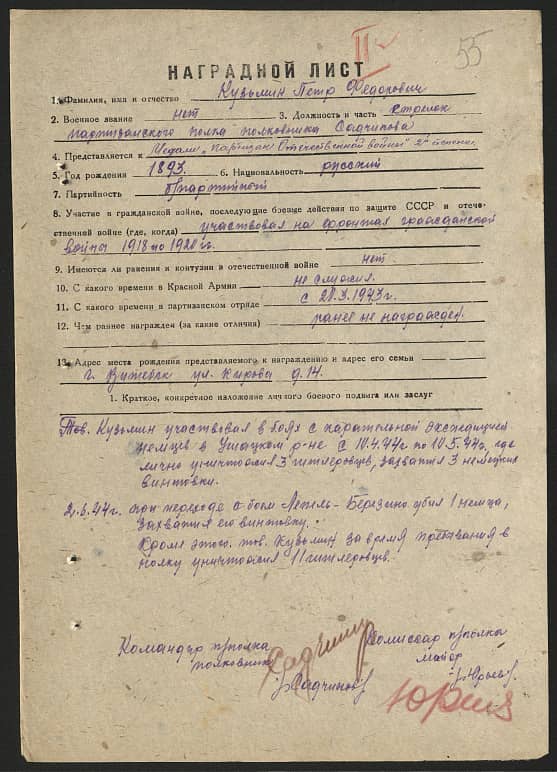 II
55
НАГРАДНОЙ ЛИСТ
1. Фамилия, имя и отчество Кузьмин Петр Федорович
2. Военное звание нет 3. Должность и часть стрелок
партизанского полка полковника Садчикова
4. Представляется к Медали „Партизан Отечественной войны" 2й степени
5. Год рождения 1893 6. Национальность русский
7. Партийность б/партийный
8. Участие в гражданской войне, последующие боевые действия по защите СССР и отече-
ственной войне (где, когда) участвовал на фронтах гражданской
войны 1918 по 1920 гг.
9. Имеются ли ранения и контузии в отечественной войне нет.
10. С какого времени в Красной Армии не служил.
11. С какого времени в партизанском отряде с 20.3.1943 г.
12. Чем раннее награжден (за какие отличия) ранее не награжден.
13. Адрес места рождения представляемого к награждению и адрес его семьи
г. Витебск ул. Кирова д. 14.
1. Краткое, конкретное изложение личного боевого подвига или заслуг
Тов. Кузьмин участвовал в боях с карательной экспедицией
немцев в Ушацком р-не с 10.4.44г по 10.5.44г, где
лично уничтожил 3 гитлеровцев, захватил 3 немецких
винтовки.
2.6.44г. при переходе с боем Лепель-Березино убил 1 немца,
захватил его винтовку.
Кроме этого тов. Кузьмин за время пребывания в
полку уничтожил 11 гитлеровцев.
Командир п/полка Комиссар п/полка
полковник майор
/Садчиков/ /Юрьев/